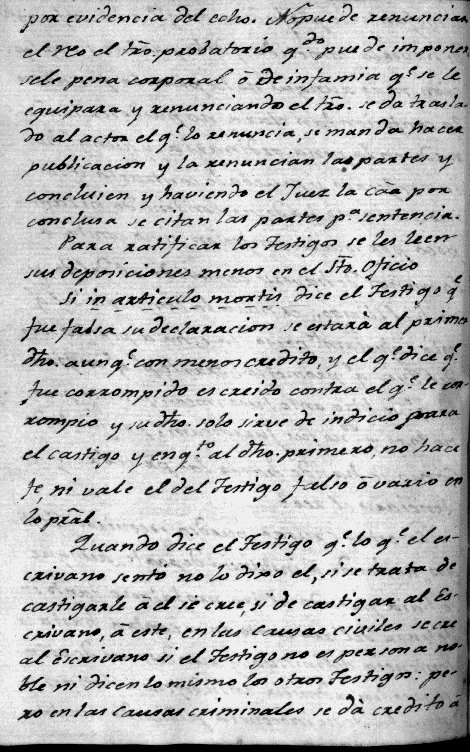 por evidencia del echo. No puede renunciar
el reo el tro. probatorio qdo. puede imponer
sele pena corporal ô de infamia qe. se le
equipara y renunciando el tro. se da trasla-
do al actor el qe. lo renuncia, se manda hacer
publicacion y la renuncian las partes y
concluien y haviendo el Juez la caa. por
conclusa se citan las partes pa. sentencia.
Para ratificar los Testigos se les leen
sus deposiciones menos en el Sto. Oficio
Si in articulo mortis dice el Testigo qe.
fue falsa su declaracion se estarà al primer
dho. aunqe. con menos credito, y el qe. dice qe.
fue corrompido es creido contra el qe. le cor-
rompio y su dho. solo sirve de indicio para
el castigo y en qto. al dho. primero, no hace
fe, ni vale el del Testigo falso ô vario en
lo pral.
Quando dice el Testigo qe. lo qe. el es-
crivano sentó no lo dixo el, si se trata de
castigarle â el se cree, si de castigar al Es-
crivano, â este, en las causas civiles se cre
al Escrivano si el Testigo no es persona no-
ble ni dicen lo mismo los otros Testigos: pe-
ro en las causas criminales se dà credito â